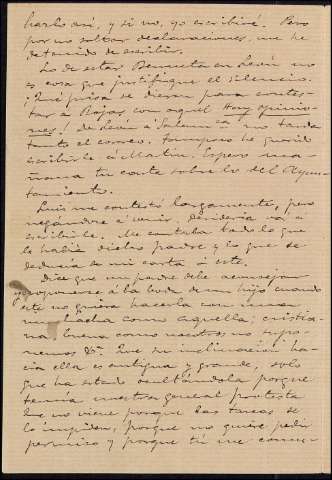 hazlo así, y si no, yo escribiré. Pero
por no soltar declaraciones, me he
detenido de escribir.
Lo de estar Berrueta en León no
es cosa que justifique el silencio.
¡Qué prisa se dieron para contes-
tar a Rojas con aquel Hay opinio-
nes! De León á Salam.ca no tarda
tanto el correo. Tampoco he querido
escribirle á Martín. Espero ma-
ñana tu carta sobre lo del Ayun-
tamiento.
Luis me contestó largamente, pero
negándose á venir. Desidería va á
escribirle. Me contaba todo lo que
le había dicho padre y lo que se
deducía de mi carta á éste.
Dice que un padre debe aconsejar
oponerse á la boda de un hijo cuando
éste no quiera hacerla con una
muchacha como aquella; cristia-
na, buena como nosotros, no supo-
nemos &ª. Que su inclinación ha-
cia ella es antigua y grande, solo
que ha estado ocultándola porque
temía nuestra general protesta
Que no viene porque las tareas se
lo impiden, porque no quiere pedir
permiso y porque tú me comu-